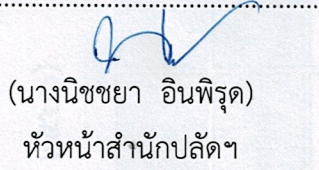 (นางนิชชยา อินพิรุด)
หัวหน้าสำนักปลัดฯ